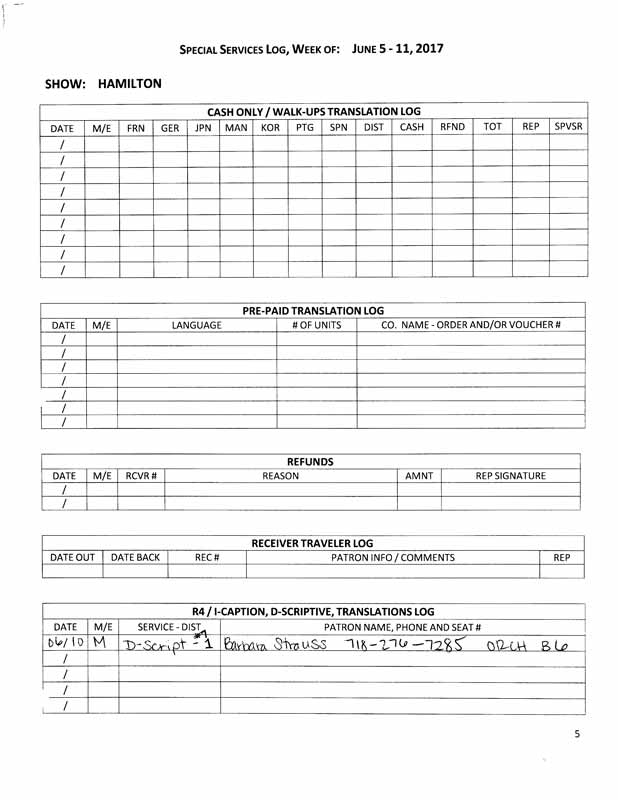 SPECIAL SERVICES LOG, WEEK OF: JUNE 5 - 11, 2017
SHOW: HAMILTON
CASH ONLY / WALK-UPS TRANSLATION LOG
DATE M/E FRN GER JPN MAN KOR PTG SPN DIST CASH RFND TOT REP SPVSR
/
/
/
/
/
/
/
/
/
PRE-PAID TRANSLATION LOG
DATE M/E LANGUAGE # OF UNITS CO. NAME - ORDER AND/OR VOUCHER #
/
/
/
/
/
/
/
REFUNDS
DATE M/E RCVR # REASON AMNT REP SIGNATURE
/
/
RECEIVER TRAVELER LOG
DATE OUT DATE BACK REC # PATRON INFO / COMMENTS REP
R4 / I-CAPTION, D-SCRIPTIVE, TRANSLATIONS LOG
DATE M/E SERVICE - DIST PATRON NAME, PHONE AND SEAT #
06/10 M D-Script - #1 Barbara Strauss 718-276-7285 ORCH B6
/
/
/
/
5